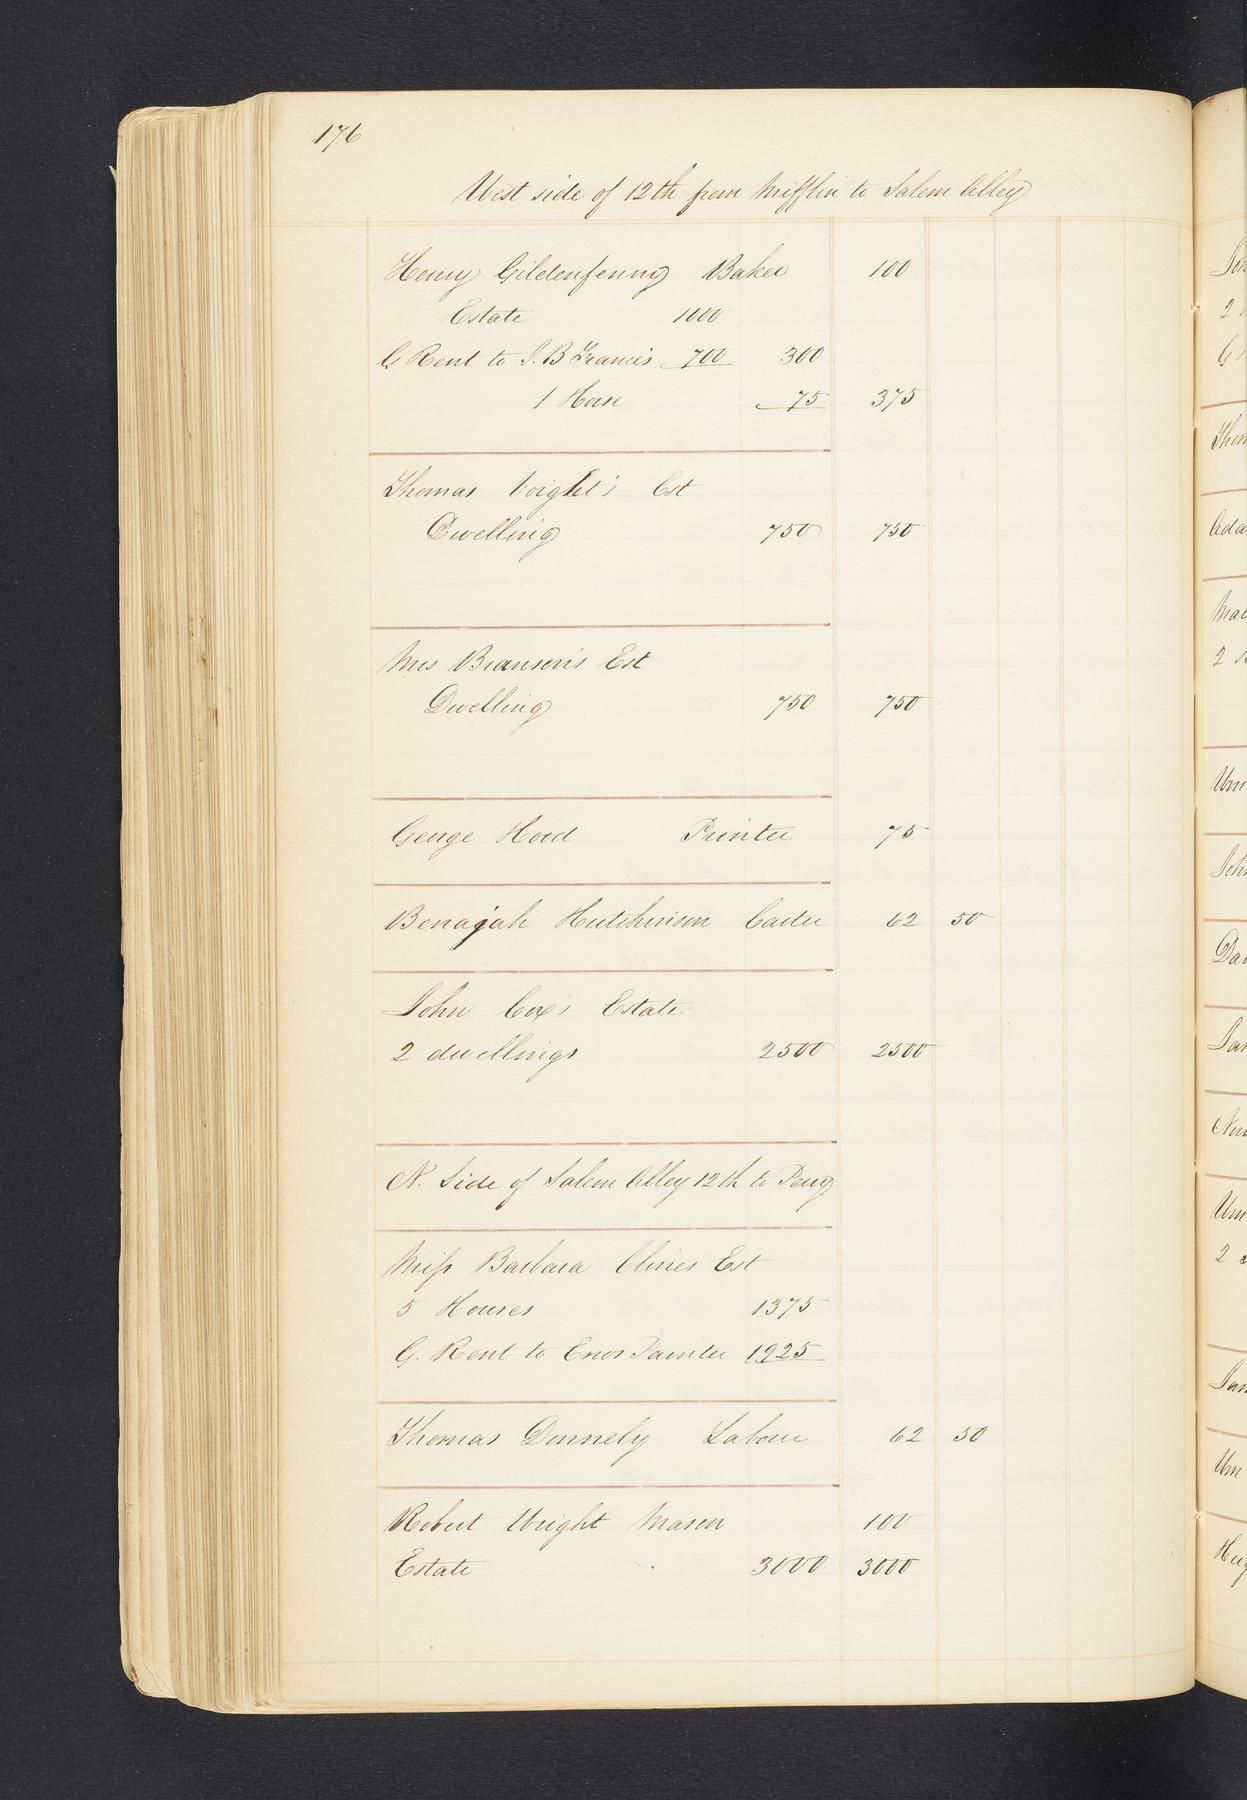 176
West side of 12th from Mifflin to Salem Alley
Henry Gildenfenny Baker 100
Estate 1000
G Rent to J. B Francis 700 300
1 Horse 75 375
Thomas Voight's Est
Dwelling 750 750
Mrs Branson's Est
Dwelling 750 750
George Hord Printer 75
Benajah Hutchinson Carter 62 50
John Cox's Estate
2 dwellings 2500 2500
N. Side of Salem Alley 12th to
Miss Barbara Clines Est
5 Houses 1375
G. Rent to Enos Painter 1925
Thomas Donnely Labour 62 50
Robert Wright Mason 100
Estate 3000 3000